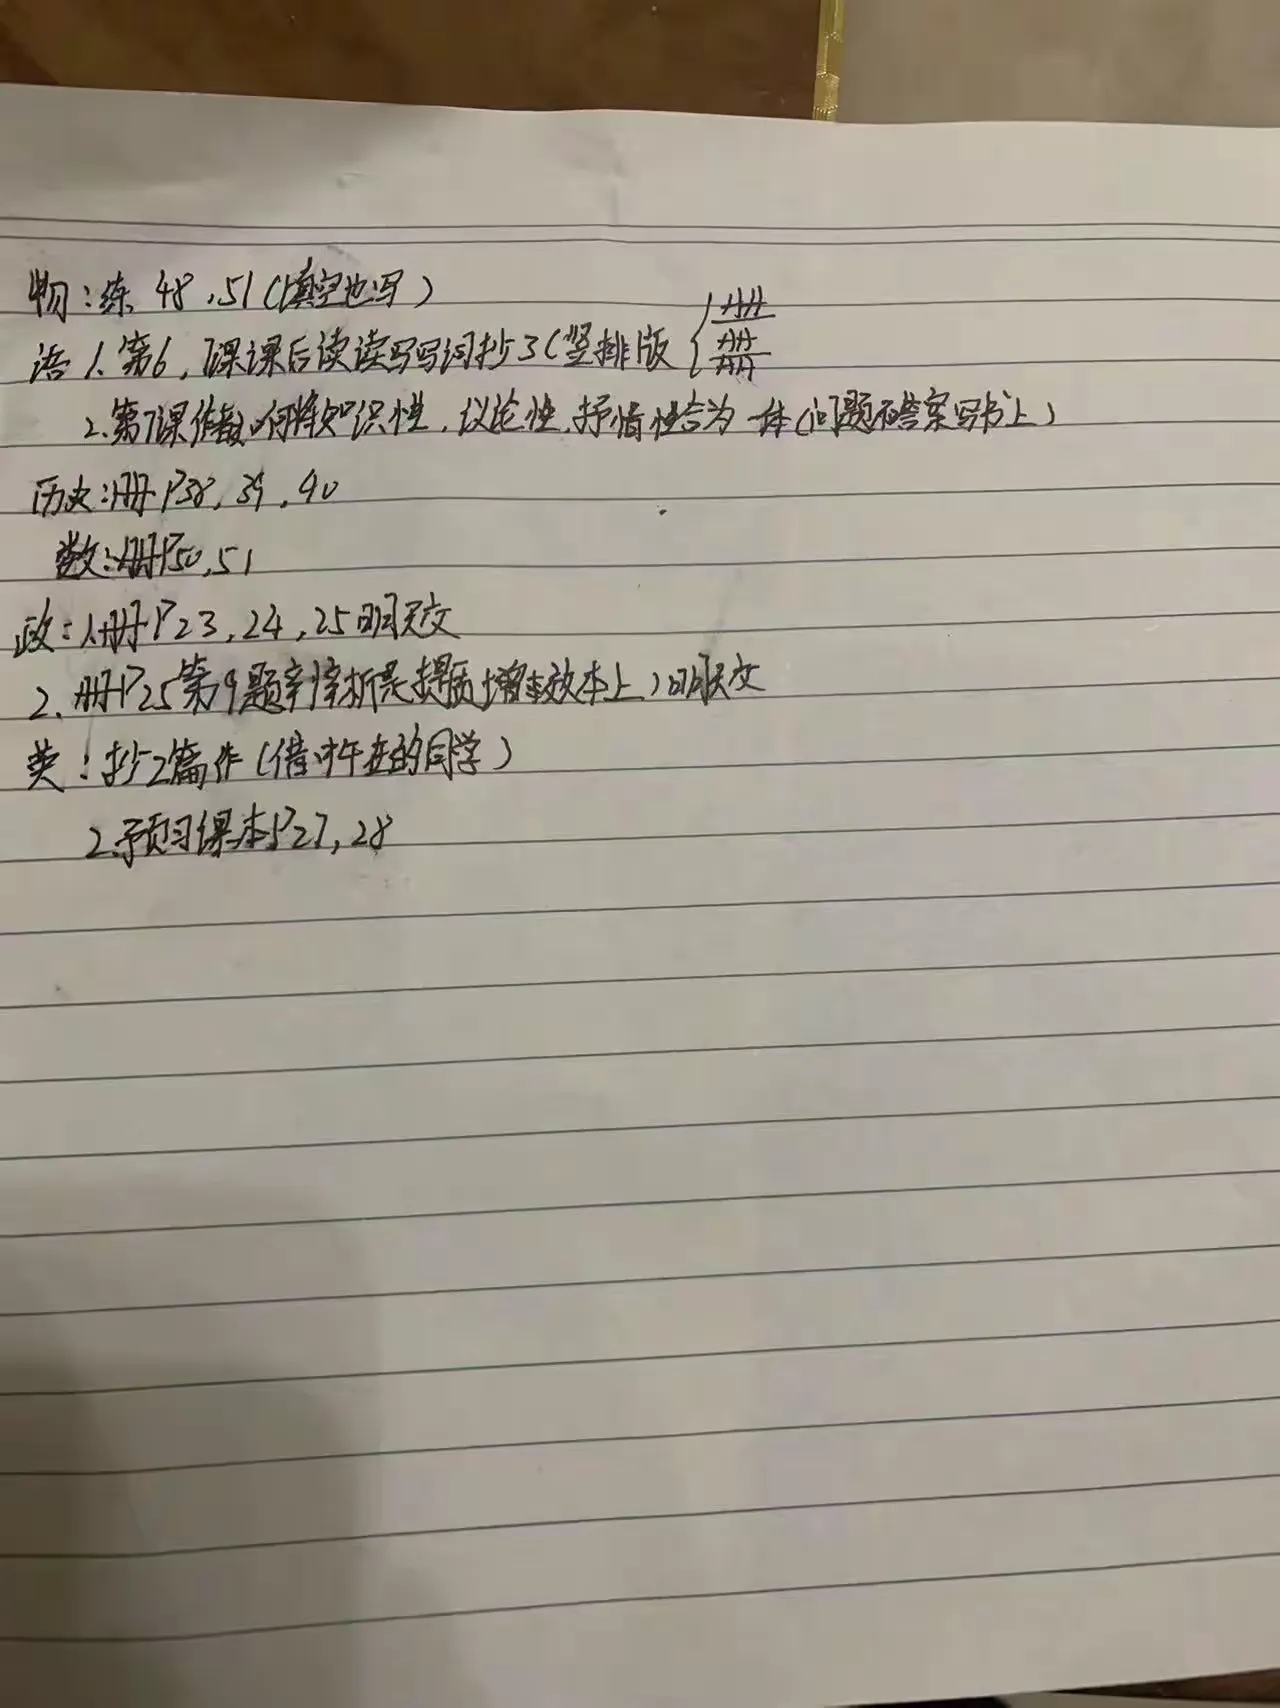 物:练 48,51(填空也写)
语 1.第6,7课课后读读写写词抄3(竖排版 { AA AA AA
2.第7课作者如何将知识性,议论性,抒情性合为一体(问题和答案写书上)
历史:册P38,39,40
数:册P50,51
政:1.册P23,24,25明天交
2.册P25第9题辛 析 提质增效本上)明天交
英:抄2篇作(借 午在的同学)
2.预习课本P27,28